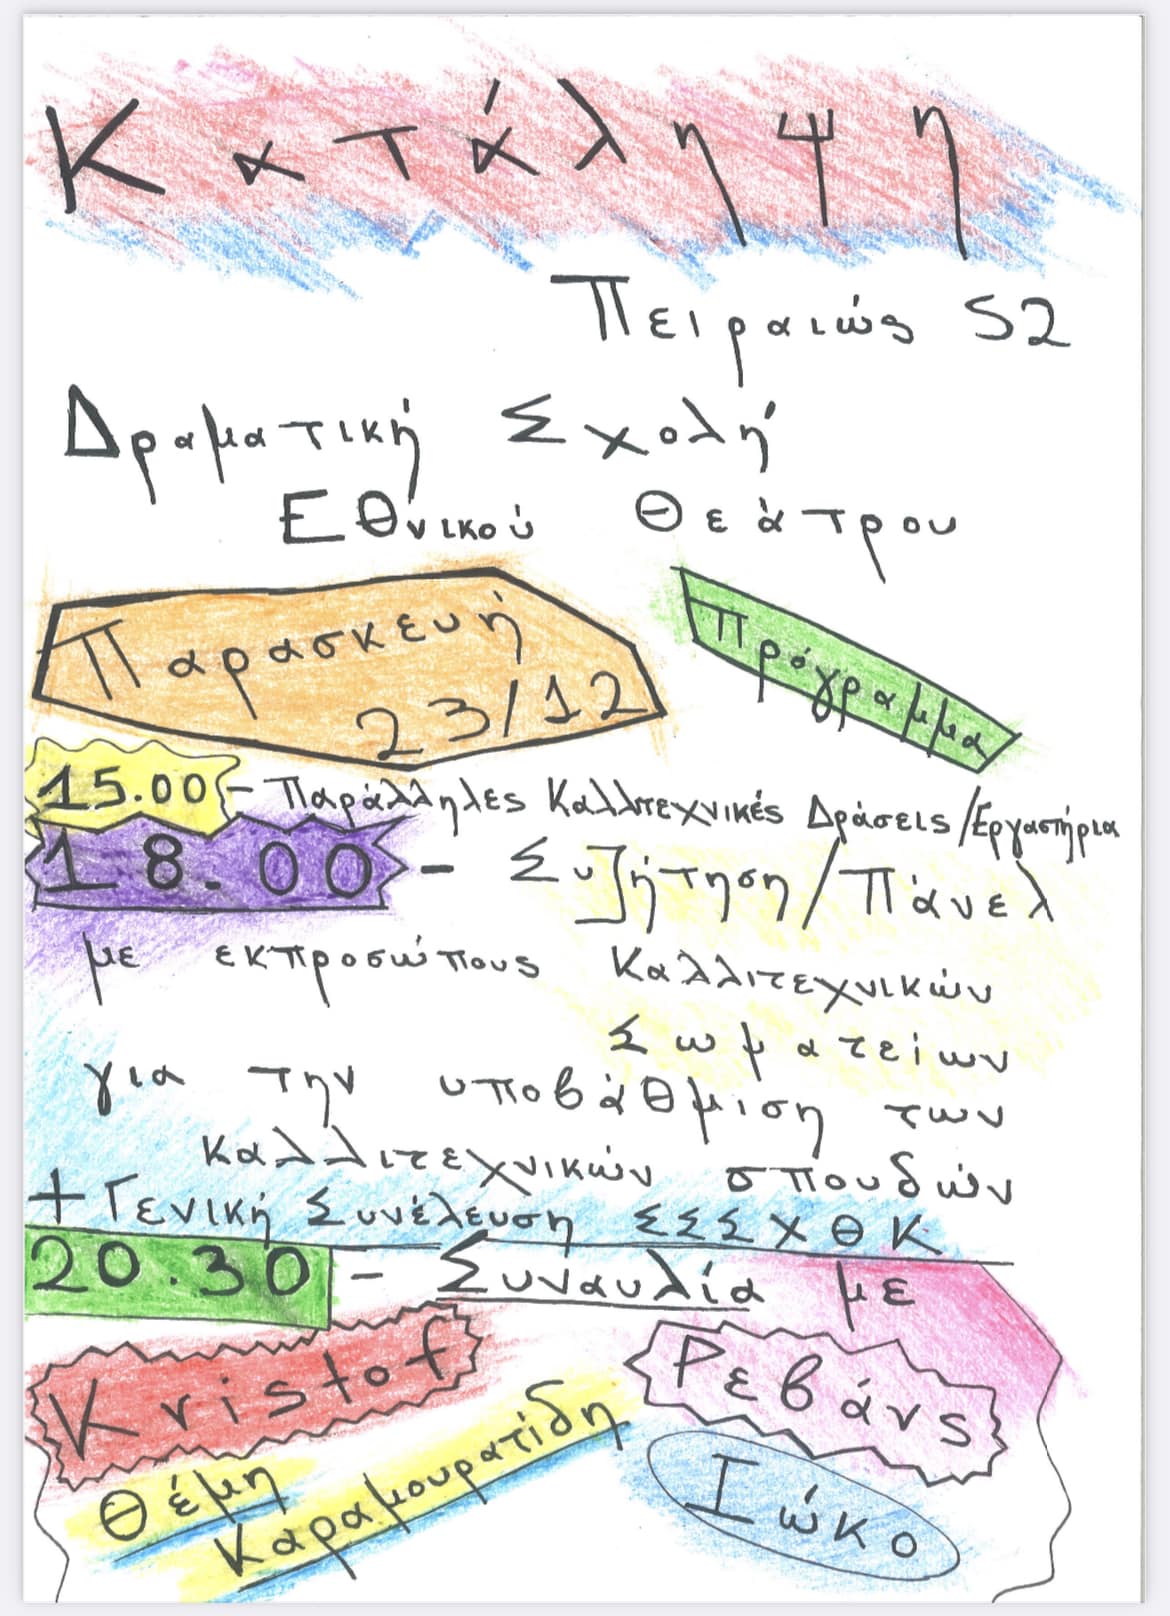 Κατάληψη
Πειραιώς 52
Δραματική Σχολή
Εθνικού Θεάτρου
Παρασκευή
23/12
Πρόγραμμα
15.00 - Παράλληλες Καλλιτεχνικές Δράσεις/Εργαστήρια
18.00 - Συζήτηση/Πάνελ
με εκπροσώπους Καλλιτεχνικών
Σωματείων
για την υποβάθμιση των
καλλιτεχνικών σπουδών
+ Γενική Συνέλευση ΣΣΣΧΘΚ
20.30 - Συναυλία με
Kristof
Ρεβάνς
Θέμη
Καραμουρατίδη
Ιώκο